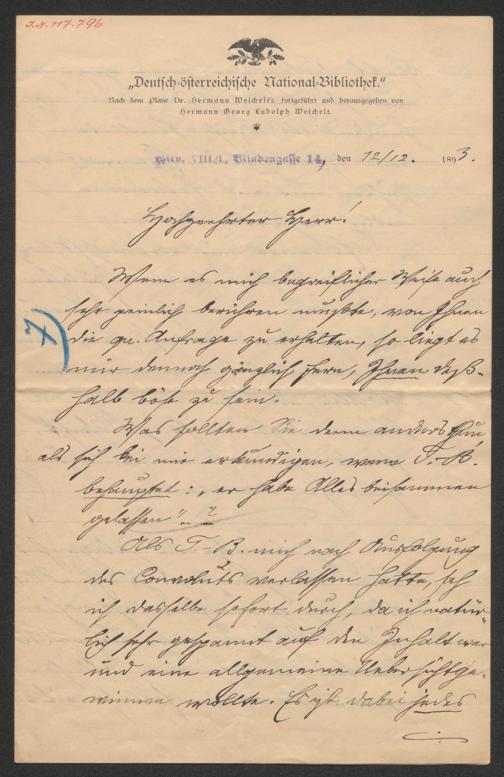 J.N. 117.796
„Deutsch-österreichische National-Bibliothek.“
Nach dem Plane Dr. Hermann Weichelt's fortgeführt und herausgegeben von
Hermann Georg Ludolph Weichelt.
Wien, VIII/1, Blindengasse 14, den 12/12. 1893.
Hochgeehrter Herr!
Wenn es mich begreiflicher Weise auch
sehr peinlich berühren mußte, von Ihnen
die gn. Anfrage zu erhalten, so liegt es
mir dennoch gänzlich fern, Ihnen deß-
halb böse zu sein.
Was sollten Sie denn anders thun
als sich bei mir erkundigen, wenn T.-B.
behauptet: „er habe Alles beisammen
gelassen“ - ?
Als T.-B. mich nach Ausfolgung
des Convoluts verlassen hatte, sah
ich dasselbe sofort durch, da ich natür-
lich sehr gespannt auf den Inhalt war
und eine allgemeine Uebersicht ge-
winnen wollte. Es ist dabei jedes
7